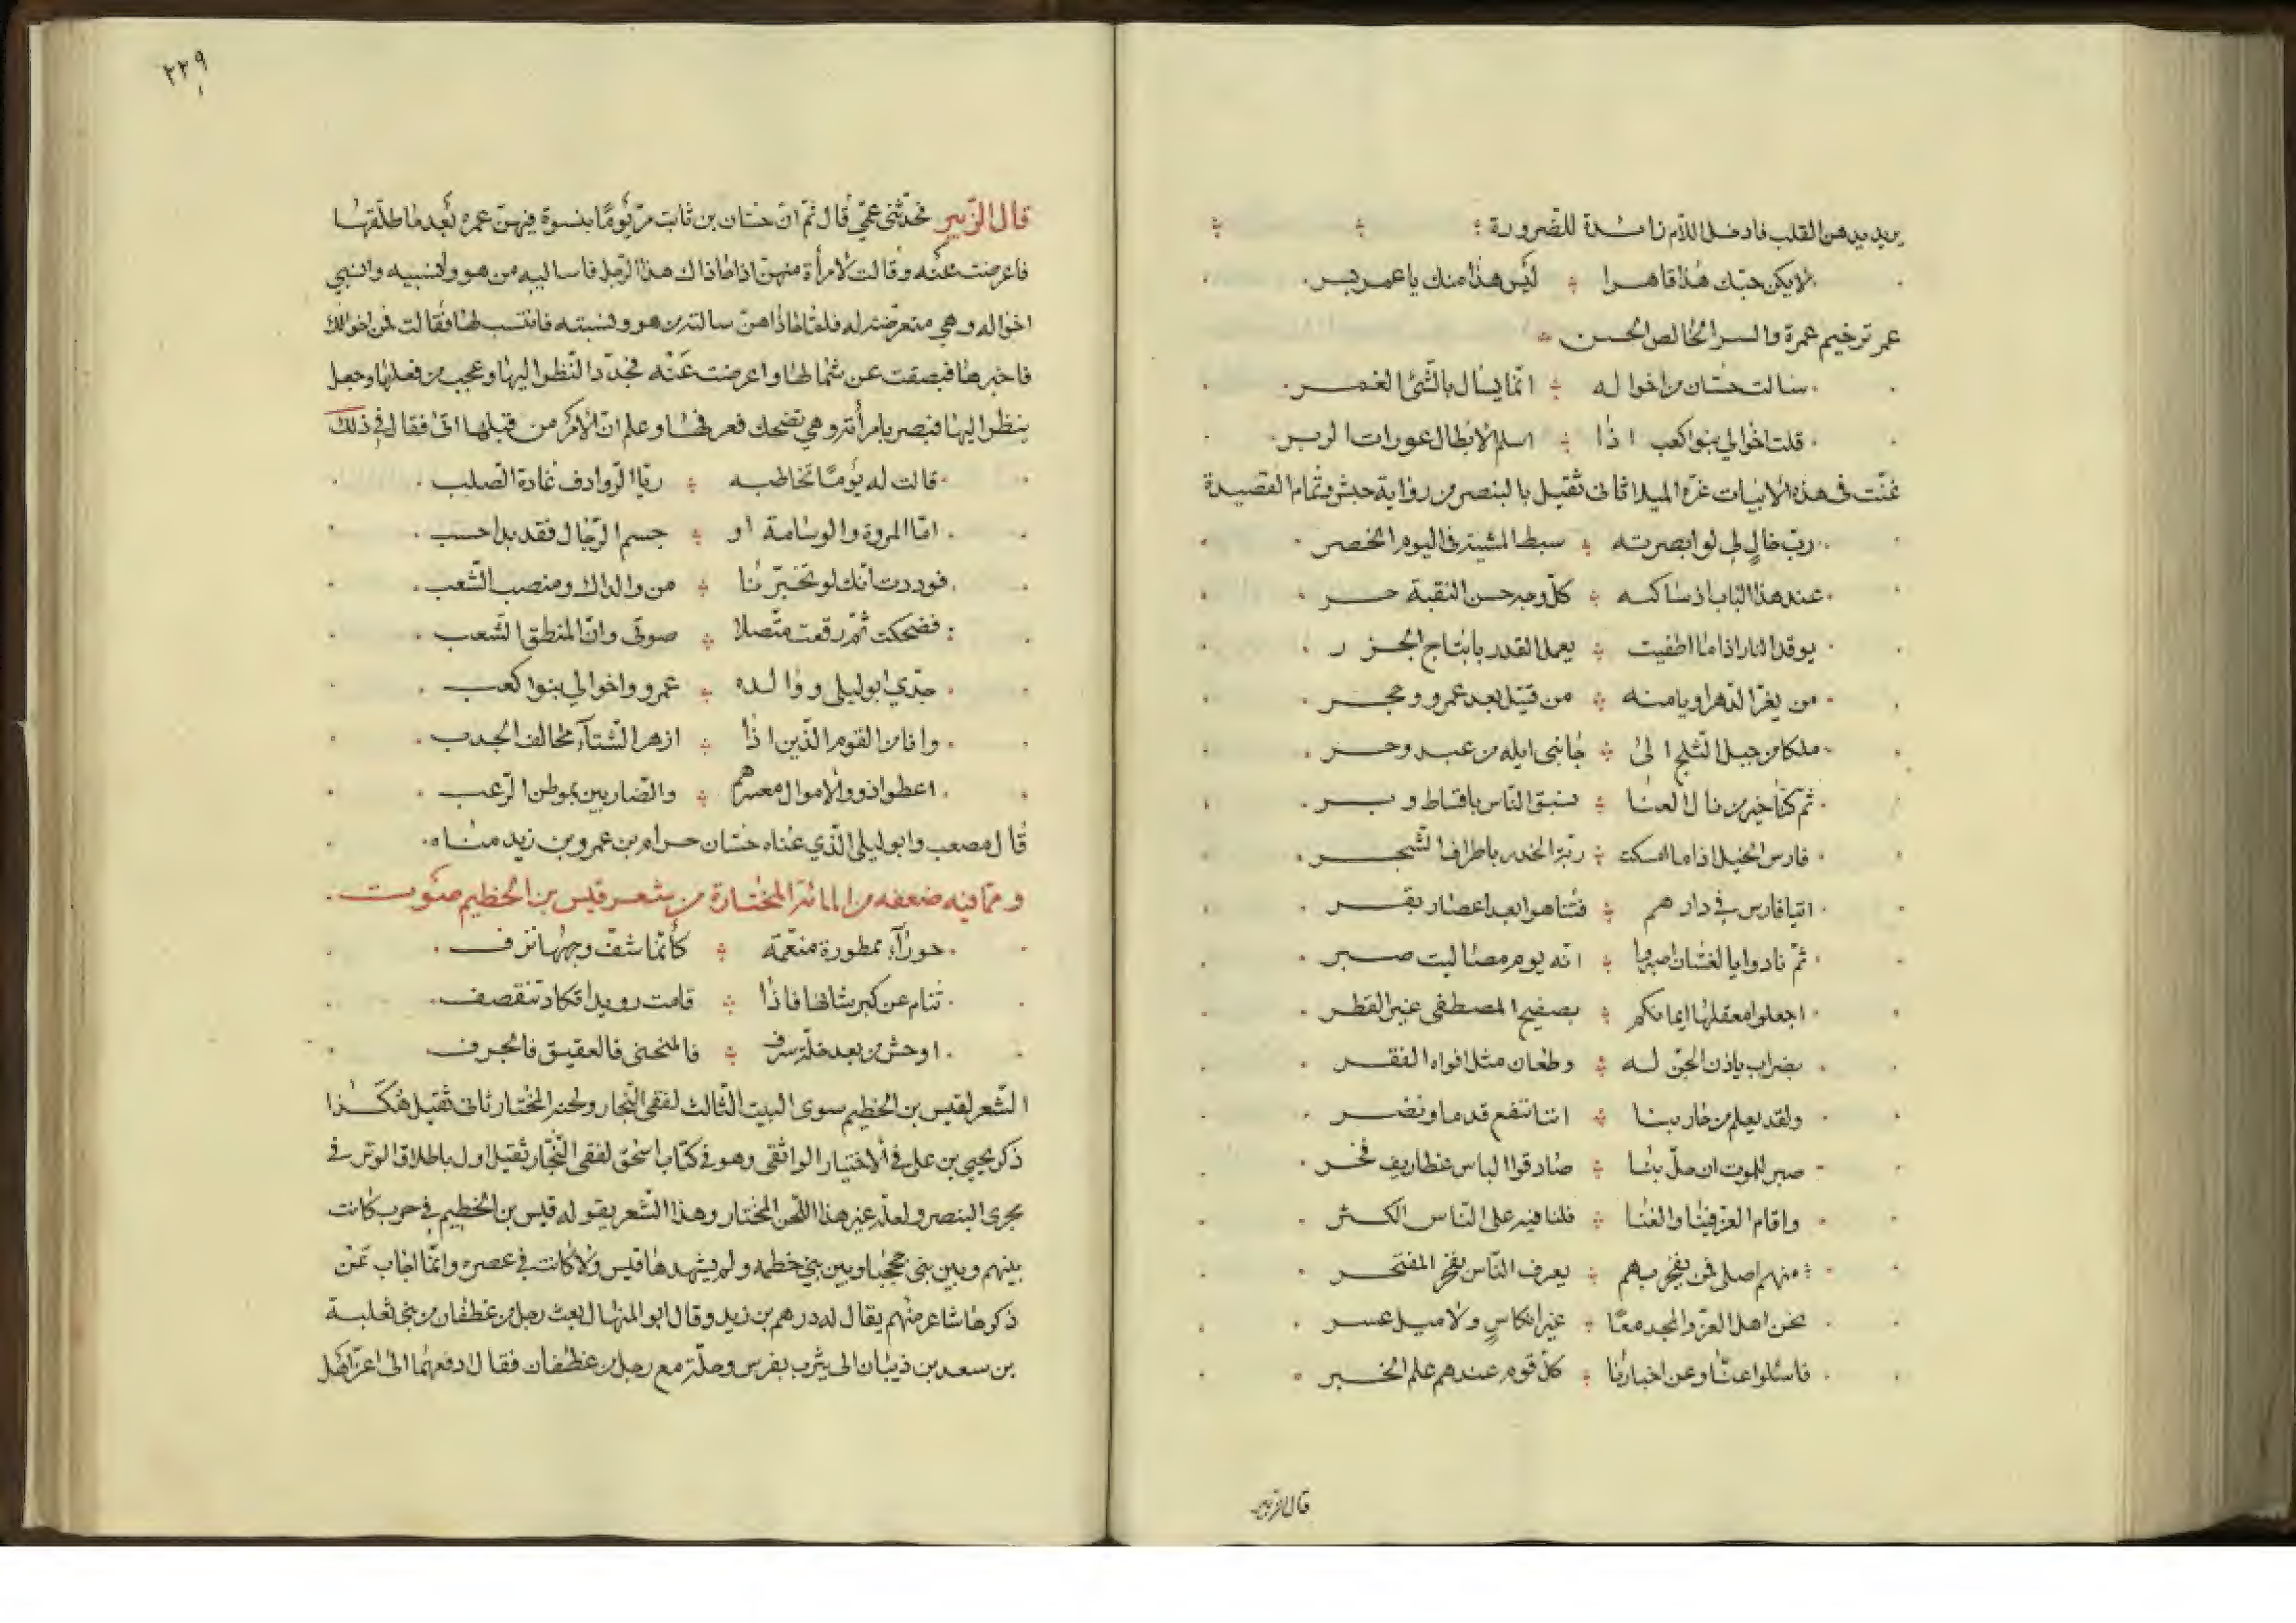 يريد يدهن القلب فادخل اللام زائدة للضرورة
لا يكن حبّك هذا قاهرا ÷ ليس هذا منك يا عمر بسر
عمر ترخيم عمرة والسر الخالص الحسن
سالت حسّان من اخواله ÷ انّما يسال بالشّئ الغمر
قلت اخوالي بنوا كعب اذا ÷ اسلم الابطال عورات الدبر
غنّت في هذه الابيات عزة الميلا ثاني ثقيل بالبنصر من رواية حبش وتمام القصيدة
ربّ خالٍ لي لو ابصرته ÷ سبط المشية في اليوم الخصر
عند هذا الباب اذ ساكنه ÷ كلّ وجه حسن النقبة حر
يوقد النار اذا ما اطفيت ÷ يعمل القدر باثباج الجزر
من يغرّ الدّهر او يامنه ÷ من قتيل بعد عمرو وحجر
ملكا من جبل الثلج الى ÷ جانبي ايله من عبد وحر
ثم كنّا خير من نال العنا ÷ سبق الناس باقساط وبر
فارس الخيل اذا ما امسكت ÷ ربّة الخدر باطراف الشجر
اتيا فارس في دارهم ÷ فتناهوا بعد اعصار بقر
ثمّ نادوا يا لغسّان اصبروا ÷ انه يوم مصاليت صبر
اجعلوا معقلها ايمانكم ÷ بصفيح المصطفى غير الفطر
بضراب ياذن الجنّ له ÷ وطعان مثل افواه الفقر
ولقد يعلم من حاربنا ÷ اننا ننفع قدما ونضر
صبر للموت ان حلّ بنا ÷ صادقوا الباس غطاريف فخر
واقام العزّ فينا والغنا ÷ فلنا فيه على النّاس الكثر
منهم اصلي فمن يفخر بهم ÷ يعرف النّاس بفخر المفتخر
نحن اهل العزّ والمجد معًا ÷ غير انكاسٍ ولا ميل عسر
فاسئلوا عنّا وعن اخبارنا ÷ كلّ قوم عندهم علم الخبر
قال الزبير
٢٢٩
قال الزّبير فحدّثني عمّي قال ثمّ انّ حسّان بن ثابت مرّ يومًا بنسوة فيهنّ عمره بعد ما طلّقها
فاعرضت عنه وقالت لامرأة منهنّ اذا حاذاك هذا الرّجل فاساليه من هو وانسبيه وانسبي
اخواله وهي متعرضة له فلمّا حاذاهنّ سالته من هو ونسبته فانتسب لها فقالت فمن اخوالك
فاخبرها فبصقت عن شمالها واعرضت عنه فحدّد النّظر اليها وعجب من فعلها وجعل
ينظر اليها فبصر بامرأته وهي تضحك فعرفها وعلم انّ الامر من قبلها اتى فقال في ذلك
قالت له يومًا تخاطبه ÷ ريّا الرّوادف غادة الصّلب
امّا المروة والوسامة او ÷ جسم الرّجال فقد بدا حسب
فوددت انّك لو تخبّرنا ÷ من والداك ومنصب الشّعب
فضحكت ثمّ رفعت متّصلا ÷ صوتي وانّ المنطق الشّعب
جدّي ابو ليلى ووالده ÷ عمرو واخوالي بنوا كعب
وانا من القوم الّذين اذا ÷ ازهر الشّتاء مخالف الجدب
اعطوا ذوو الاموال معسرهم ÷ والضّاربين بموطن الرّعب
قال مصعب وابو ليلى الّذي عناه حسّان حرام بن عمرو بن زيد مناه
وممّا فيه صنعة من المائة المختارة من شعر قيس بن الخطيم صوت
حوراء ممطورة منعّمة ÷ كأنّما شفّ وجهها نزف
تنام عن كبر شانها فاذا ÷ قامت رويدا تكاد تنقصف
اوحش من بعد خلّة سرف ÷ فالمنحنى فالعقيق فالجرف
الشّعر لقيس بن الخطيم سوى البيت الثّالث لفقى النّجار ولحنه المختار ثاني ثقيل هكذا
ذكر يحيى بن علي في الاختيار الواثقي وهو في كتاب اسحق لفقى النّجّار ثقيل اول باطلاق الوتر في
مجرى البنصر ولعلّه غير هذا اللّحن المختار وهذا الشّعر يقوله قيس بن الخطيم في حرب كانت
بينهم وبين بني جحجبا وبين بني خطمه ولم يشهدها قيس ولا كانت في عصره وانّما اجاب عن
ذكرها شاعر منهم يقال له درهم بن زيد وقال ابو المنهال بعث رجل من غطفان من بني ثعلبة
بن سعد بن ذبيان الى يثرب بفرس وحلّة مع رجل من غطفان فقال ادفعهما الى اعزّ اهل